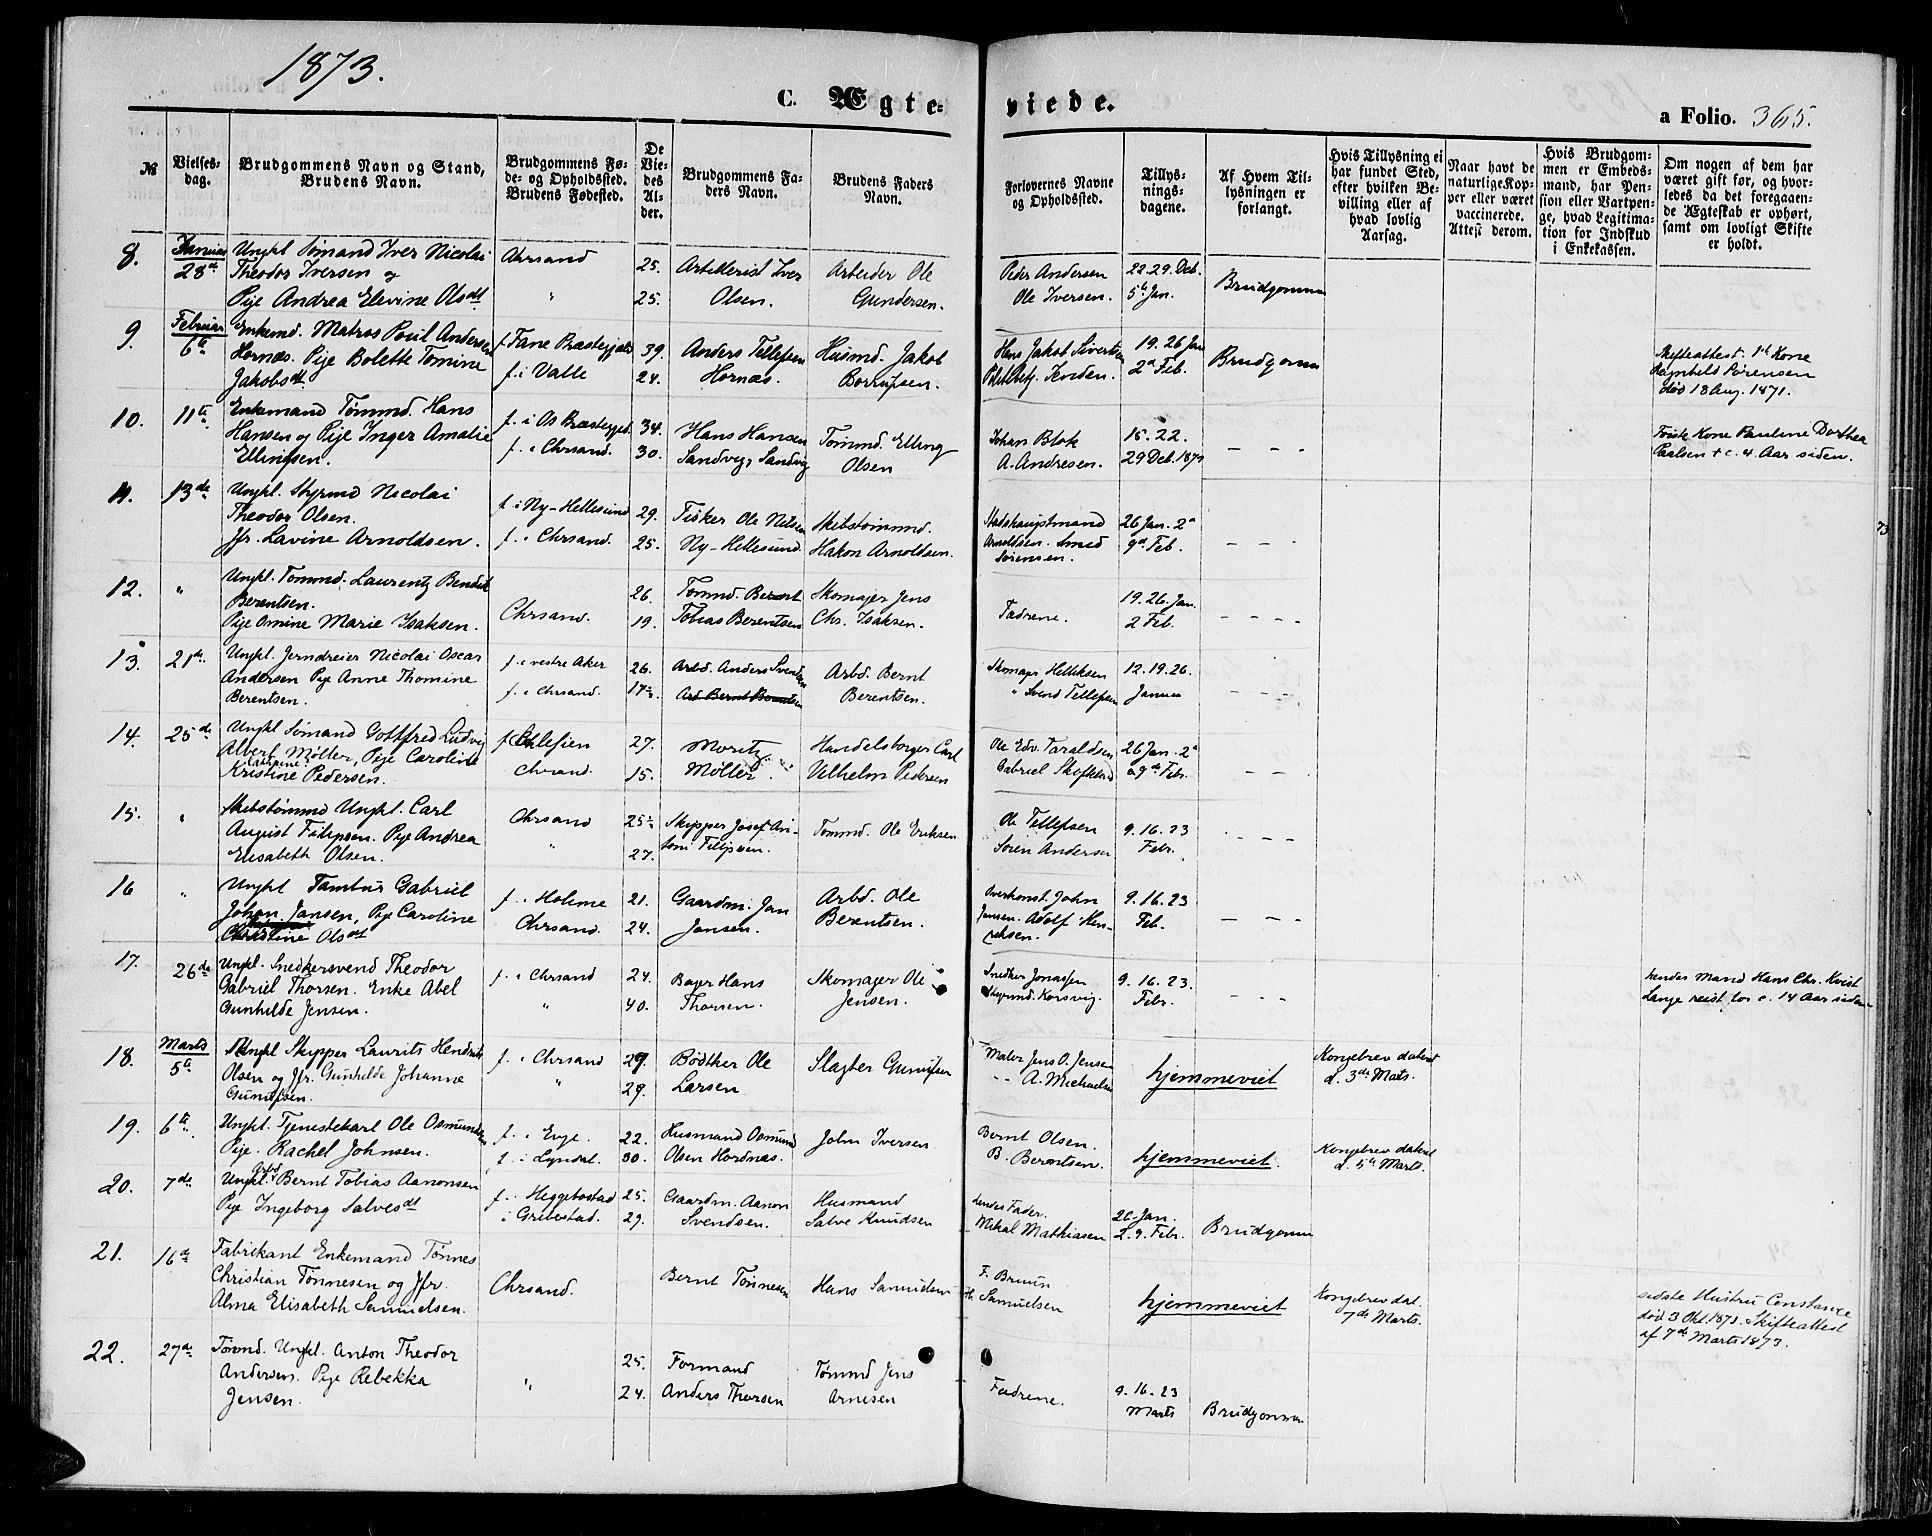 1873.
C. Ægteviede.
a Folio. 365.
№
Vielsesdag.
Brudgommens Navn og Stand, Brudens Navn.
Brudgommens Føde- og Opholdssted. Brudens Fødested.
De Viedes Alder.
Brudgommens Faders Navn.
Brudens Faders Navn.
Forlovernes Navne og Opholdssted.
Tillysningsdagene.
Af Hvem Tillysningen er forlangt.
Hvis Tillysning ei har fundet Sted, efter hvilken Bevilling eller af hvad lovlig Aarsag.
Naar havt de naturlige Kopper eller været vaccinerede. Attest derom.
Hvis Brudgommen er Embedsmand, har Pension eller Vartpenge, hvad Legitimation for Indskud i Enkekassen.
Om nogen af dem har været gift før, og hvorledes da det foregaaende Ægteskab er ophørt, samt om lovligt Skifte er holdt.
8. Januar Ungkl Tømand Iver Nicolai Chrsand 25. Artillerist Iver Arbeider Ole Peder Andersen 22. 29. Deb.
28de Theodor Iversen og " 25. Olsen. Gundersen. Ole Iversen. 5te Jan. Brudgommen
Pige Andrea Elevine Olsdt
9. Februar Enkemd. Matros Poul Andersen f. Fane Præstegjeld 39. Anders Tellefsen Husmd. Jakob Hans Jakob Sivertsen 19. 26 Jan Brudgommen Skifteattest. 1ste Kone
6te Hornæs. Pige Bolette Tomine f. i Valle 24. Hornæs. 2den Feb. Ragnhild Sørensen
Jakobsdt død 18 Aug. 1871.
10. 11te Enkemand Tømmd. Hans f. i Os Præstegjed. 34. Hans Hansen Tømmd. Elling Johan Blok 15. 22. Første Kone Pauline Dorthea
Hansen og Pige Inger Amalie f. i Chrsand. 30. Sandvig, Sandvig Olsen A. Andresen. 29 Deb. — — — Paalsen + c. 4 Aar siden.
Ellingsen.
11. 13de Ungkl. Styrmd Nicolai f. i Ny-Hellesund 29. Fisker Ole Nilsen Skibstømmd. Stadshauptmand 26 Jan. 2den
Theodor Olsen. f. i Chrsand. 25. Ny-Hellesund. Hakon Arnoldsen. Arnoldsen. Smed 9de Feb. — — —
Jfr. Lavine Arnoldsen. Sørensen.
12. " Ungkl. Tømmd. Laurentz Bendik 26. Tømmd. Skomager Jens 19. 26. Jan.
Berentsen. Chrsand. 19. Tobias Berentsen Chr. Isaksen. Fadrene. 2 Feb. — — — —
Pige Omine Marie Isaksen.
13. 21de Ungkl. Jerndreier Nicolai Oscar f. i vestre Aker 26. Arbd. Anders Svendsen Arbd. Bernt Skomager Helliksen 12. 19. 26.
Andersen Pige Anne Thomine f. i Chrsand. 17½ Arb Bernt Berentsen Berentsen. " Svend Tellefsen Januar — — —
Berentsen.
14. 25de Ungkl Sømand Gottfred Ludvig f. i Schlesien 27. Moritz Handelsborger Carl Ole Edv. Taraldsen 26 Jan. 2den
Albert Møller, Pige Caroline Chrsand. 15. Møller. Vilhelm Pedersen Gabriel 9de Feb. — —
Kristine Pedersen.
15. " Skibstømmd Ungkl. Carl Chrsand 25½ Skipper Josef An- Tømmd. Ole Eriksen Ole Tellefsen 9. 16. 23
August Filipsen. Pige Andrea " 27. ton Filipsen. Søren Andersen Febr. — — —
Elisabeth Olsen.
16 " Ungkl Tambur Gabriel f. i Holeme 21. Gaardm. Jan Arbd. Ole Overkonst. John 9. 16. 23
Johan Jansen, Pige Caroline Chrsand. 24. Jansen. Berentsen. Jansen. Adolf Hen- Feb. — — —
Christine Olsdt riksen.
17. 26de Ungkl. Snedkersvend Theodor f. i Chrsand 24. Bager Hans Skomager Ole Snedker Jonassen 9. 16. 23. hendes Mand Hans Chr. Kvist
Gabriel Thorsen. Enke Abel " 40. Thorsen. Jensen. Styrmd. Korsvig. Febr. — — — Lange reist for c. 14 Aar siden
Gunhilde Jensen.
18. Marts Ungkl Skipper Laurits Hendrik f. i Chrsand 29 Bødtker Ole Slagter Gunufsen Maler Jens O. Jensen hjemmeviet Kongebrev dateret
5te Olsen og Jfr. Gunhilde Johanne " 29. Larsen - - A. Michaelsen d. 3de Marts.
Gunufsen.
19. 6te Ungkl. Tjenestekarl Ole Osmundsen f. i Evje. 22. Husmand Osmund John Iversen Bernt Olsen. hjemmeviet. Kongebrev dateret
Pige. Rachel Johnsen. f. i Lyndal. 30. Olsen Hordnæs. B. Berentsen. d. 5te Marts.
20. 7de Ungkl. Bernt Tobias Aanonsen f. i Heggebostad 25. Gaardm. Aanon Husmand hendes Fader. 26. Jan.
Pige Ingeborg Salvesdt i Gribestad. 29. Svendsen. Salve Knudsen Mikal Mathiasen 2. 9. Febr. Brudgommen
21. 16de Fabrikant Enkemand Tønnes Chrsand. Bernt Tønnesen Hans Samuelsen F. Bruun hjemmeviet Kongebrev dat. sidste Hustru Constance
Christian Tønnesen og Jfr. H. Samuelsen 7de Marts. død 3 Okt. 1871. Skifteattest
Alma Elisabeth Samuelsen. af 7de Marts 1873.
22. 27de Tømd. Ungkl. Anton Theodor " 25. Formand Tømmd Jens Fadrene. 9. 16. 23
Andersen. Pige Rebekka 24. Anders Thorsen Arnesen Marts Brudgommen
Jensen.
73